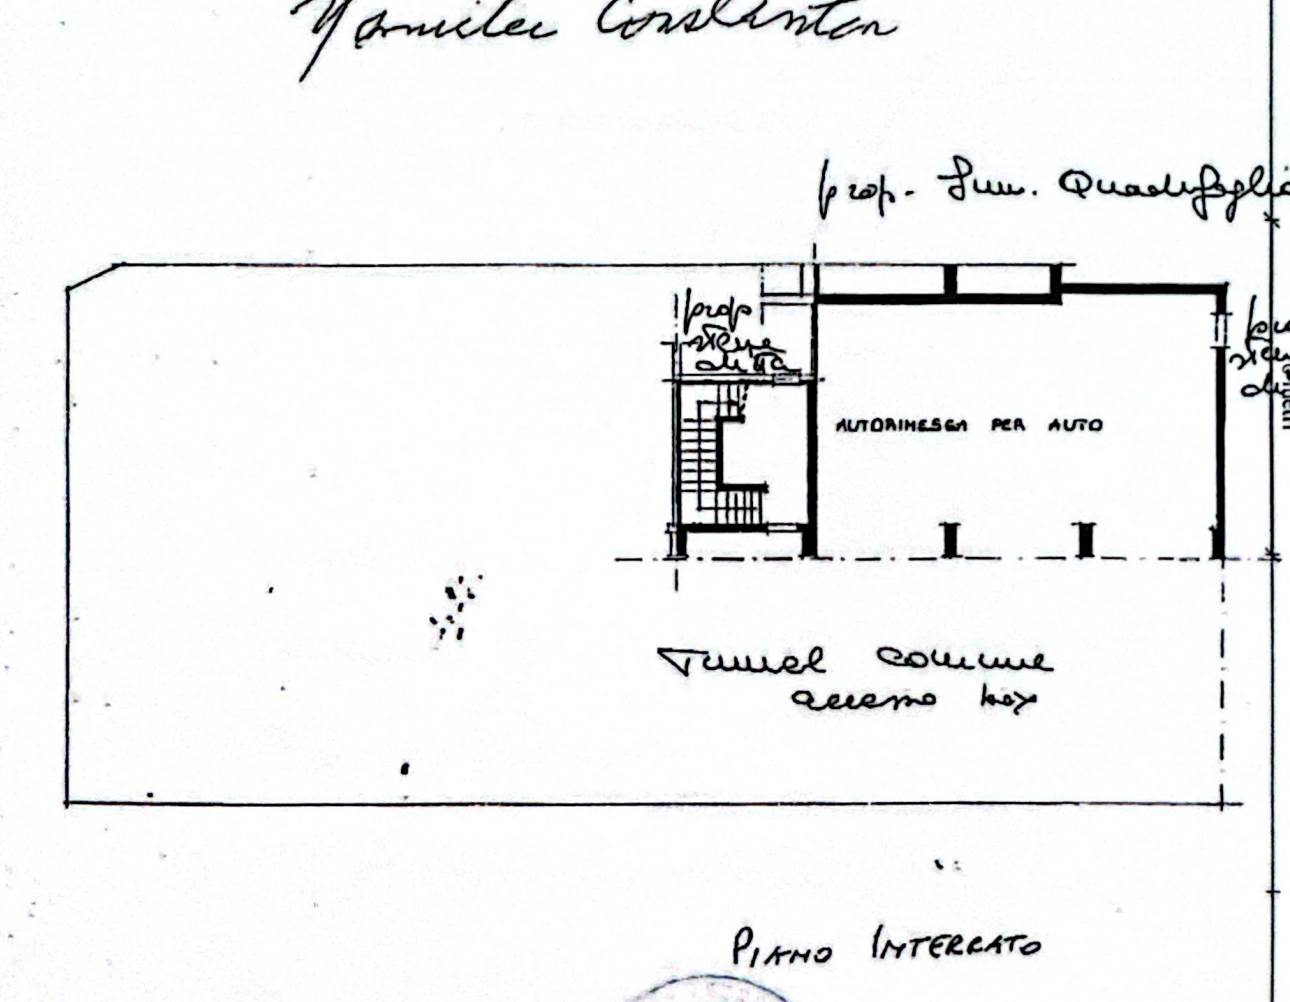 Constantin
prop. Imm. Quadrifoglio
prop
stessa
ditta
AUTORIMESSA PER AUTO
Tunnel comune
accesso box
PIANO INTERRATO